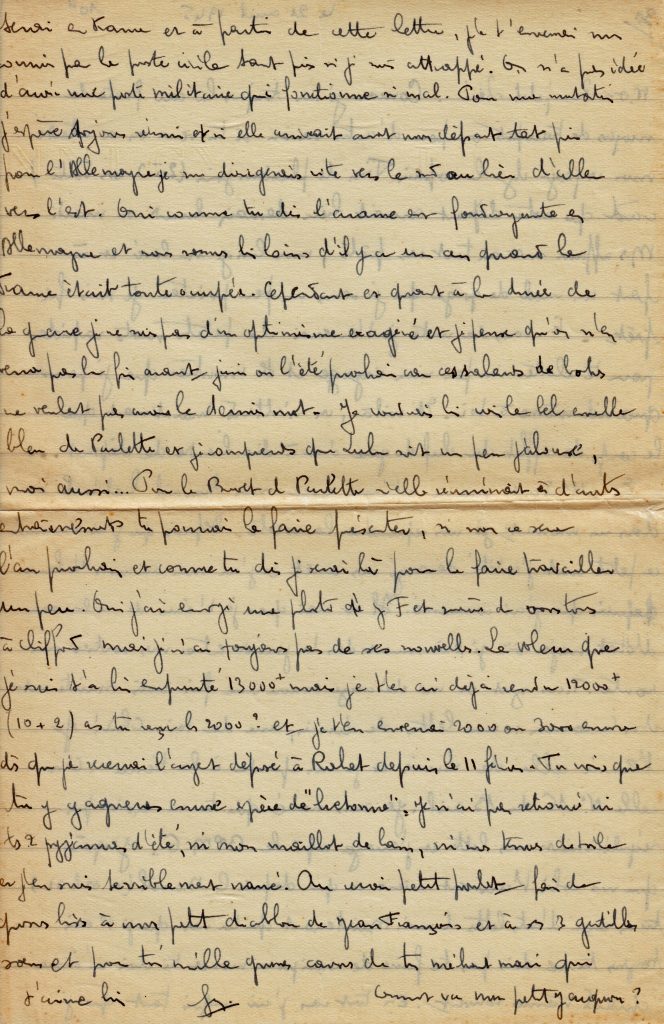 serai en France et à partir de cette lettre, je t'enverrai mon
courrier par la poste civile tant pis si j'suis attrappé. On n'a pas idée
d'avoir une poste militaire qui fonctionne si mal. Pour ma mutation
j'espère toujours réussir et si elle arrivait avant mon départ tant pis
pour l'Allemagne je me dirigerais vite vers le sud au lieu d'aller
vers l'est. Oui comme tu dis l'avance est foudroyante en
Allemagne et nous sommes bien loins d'il y a un an quand la
France était toute occupée. Cependant et quant à la durée de
la guerre je ne suis pas d'un optimisme exagéré et je pense qu'on n'en
verra pas la fin avant juin ou l'été prochain car ces salauds de boches
ne veulent pas avoir le dernier mot. Je voudrais bien voir le bel
bleu de Paulette et je comprends que Lulu soit un peu jalouse,
moi aussi... Pour le Brevet de Paulette si elle réussissait à d'autres
tu pourrais la faire présenter, si non ce sera
l'an prochain et comme tu dis je serai là pour la faire travailler
un peu. Oui j'ai envoyé une photo de J F et de vous tous
à Clifford mais je n'ai toujours pas de ses nouvelles. Le voleur que
je suis t'a bien emprunté 13000+ mais je t'en ai déjà rendu 12000+
(10 + 2) as tu reçu les 2000 ? et je t'en enverrai 2000 ou 3000 encore
dès que je recevrai l'argent déposé à Rabat depuis le 11 février. Tu vois que
tu y gagneras encore espèce de "bretonne". Je n'ai pas retrouvé ni
tes 2 pyjamas d'été, ni mon maillot de bain, ni mes tenues de toile
et j'en suis terriblement navré. Au revoir petit poulet fais de
gros bises à mon petit diablon de Jean François et à ses 3 gentilles
sœurs et pour toi mille grosses caresses de ton méchant mari qui
t'aime bien Comment va mon petit ?